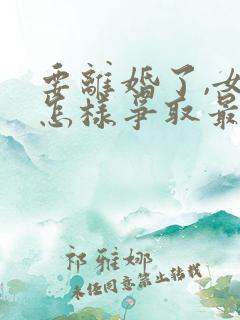 要離婚了,女
怎樣爭取最
祁雅娜
未经同意禁止转载